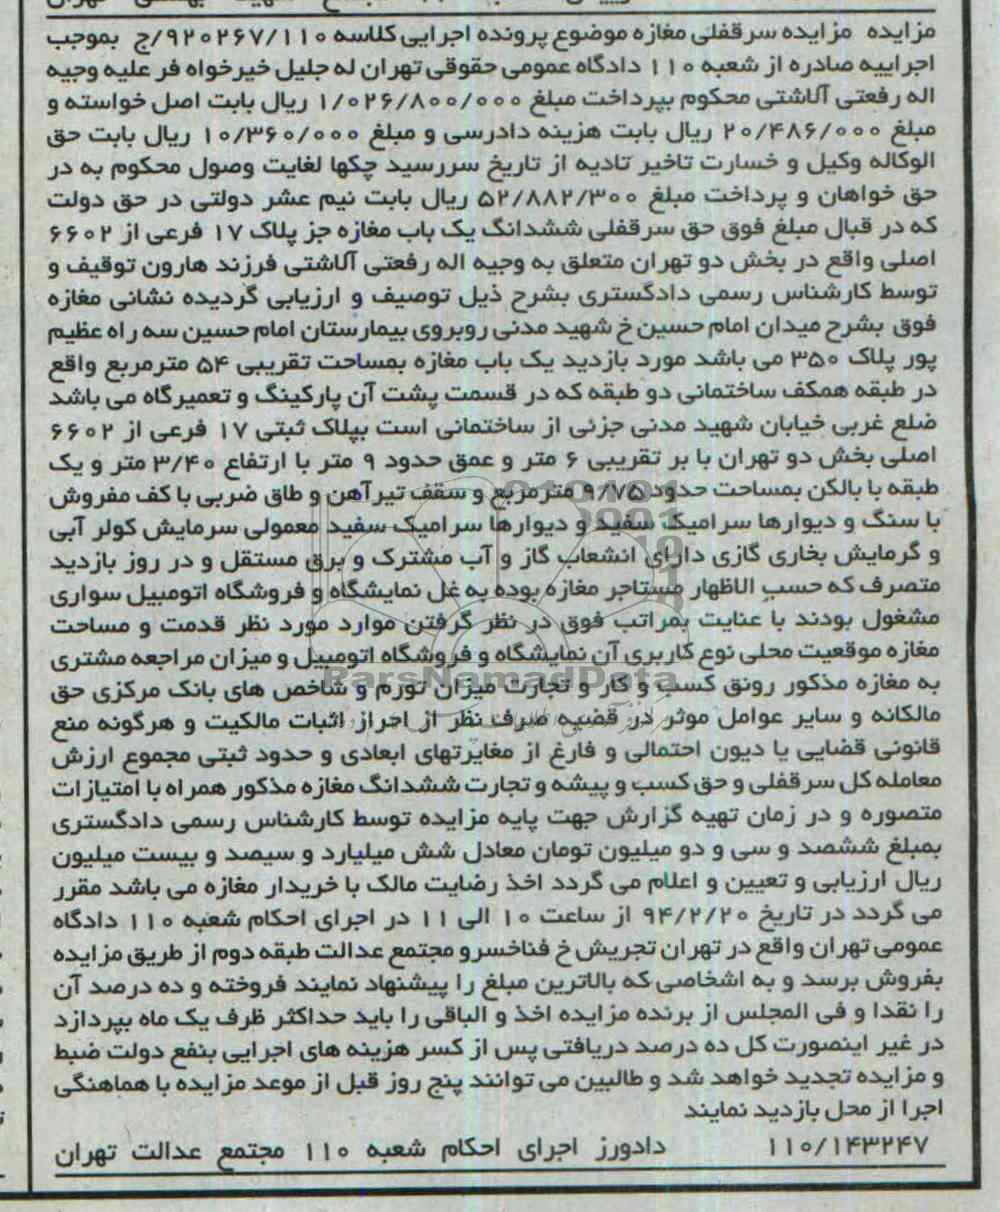 مزایده مزایده سرقفلی مغازه موضوع پرونده اجرایی کلاسه ۹۲۰۲۶۷/۱۱۰/ج بموجب
اجراییه صادره از شعبه ۱۱۰ دادگاه عمومی حقوقی تهران له جلیل خیرخواه فر علیه وجیه
اله رفعتی آلاشتی محکوم بپرداخت مبلغ ۱/۰۲۶/۸۰۰/۰۰۰ ریال بابت اصل خواسته و
مبلغ ۲۰/۴۸۶/۰۰۰ ریال بابت هزینه دادرسی و مبلغ ۱۰/۳۶۰/۰۰۰ ریال بابت حق
الوکاله وکیل و خسارت تاخیر تادیه از تاریخ سررسید چکها لغایت وصول محکوم به در
حق خواهان و پرداخت مبلغ ۵۲/۸۸۲/۳۰۰ ریال بابت نیم عشر دولتی در حق دولت
که در قبال مبلغ فوق حق سرقفلی ششدانگ یک باب مغازه جز پلاک ۱۷ فرعی از ۶۶۰۲
اصلی واقع در بخش دو تهران متعلق به وجیه اله رفعتی آلاشتی فرزند هارون توقیف و
توسط کارشناس رسمی دادگستری بشرح ذیل توصیف و ارزیابی گردیده نشانی مغازه
فوق بشرح میدان امام حسین خ شهید مدنی روبروی بیمارستان امام حسین سه راه عظیم
پور پلاک ۳۵۰ می باشد مورد بازدید یک باب مغازه بمساحت تقریبی ۵۴ مترمربع واقع
در طبقه همکف ساختمانی دو طبقه که در قسمت پشت آن پارکینگ و تعمیرگاه می باشد
ضلع غربی خیابان شهید مدنی جزئی از ساختمانی است بپلاک ثبتی ۱۷ فرعی از ۶۶۰۲
اصلی بخش دو تهران با بر تقریبی ۶ متر و عمق حدود ۹ متر با ارتفاع ۳/۴۰ متر و یک
طبقه با بالکن بمساحت حدود ۹/۷۵ مترمربع و سقف تیرآهن و طاق ضربی با کف مفروش
با سنگ و دیوارها سرامیک سفید و دیوارها سرامیک سفید معمولی سرمایش کولر آبی
و گرمایش بخاری گازی دارای انشعاب گاز و آب مشترک و برق مستقل و در روز بازدید
متصرف که حسب الاظهار مستاجر مغازه بوده به غل نمایشگاه و فروشگاه اتومبیل سواری
مشغول بودند با عنایت بمراتب فوق در نظر گرفتن موارد مورد نظر قدمت و مساحت
مغازه موقعیت محلی نوع کاربری آن نمایشگاه و فروشگاه اتومبیل و میزان مراجعه مشتری
به مغازه مذکور رونق کسب و کار و تجارت میزان تورم و شاخص های بانک مرکزی حق
مالکانه و سایر عوامل موثر در قضیه صرف نظر از احراز اثبات مالکیت و هرگونه منع
قانونی قضایی یا دیون احتمالی و فارغ از مغایرتهای ابعادی و حدود ثبتی مجموع ارزش
معامله کل سرقفلی و حق کسب و پیشه و تجارت ششدانگ مغازه مذکور همراه با امتیازات
متصوره و در زمان تهیه گزارش جهت پایه مزایده توسط کارشناس رسمی دادگستری
بمبلغ ششصد و سی و دو میلیون تومان معادل شش میلیارد و سیصد و بیست میلیون
ریال ارزیابی و تعیین و اعلام می گردد اخذ رضایت مالک با خریدار مغازه می باشد مقرر
می گردد در تاریخ ۹۴/۲/۲۰ از ساعت ۱۰ الی ۱۱ در اجرای احکام شعبه ۱۱۰ دادگاه
عمومی تهران واقع در تهران تجریش خ فناخسرو مجتمع عدالت طبقه دوم از طریق مزایده
بفروش برسد و به اشخاصی که بالاترین مبلغ را پیشنهاد نمایند فروخته و ده درصد آن
را نقدا و فی المجلس از برنده مزایده اخذ و الباقی را باید حداکثر ظرف یک ماه بپردازد
در غیر اینصورت کل ده درصد دریافتی پس از کسر هزینه های اجرایی بنفع دولت ضبط
و مزایده تجدید خواهد شد و طالبین می توانند پنج روز قبل از موعد مزایده با هماهنگی
اجرا از محل بازدید نمایند
۱۱۰/۱۴۳۲۴۷ دادورز اجرای احکام شعبه ۱۱۰ مجتمع عدالت تهران
ParsNamadData